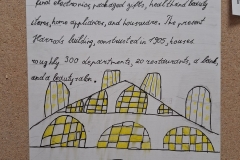 food electronics, packaged gifts, health and beauty
stores, home appliances, and housewares. The present
Harrods building, constructed in 1905, houses
roughly 300 departments, 20 restaurants, a bank,
and a beauty salon.